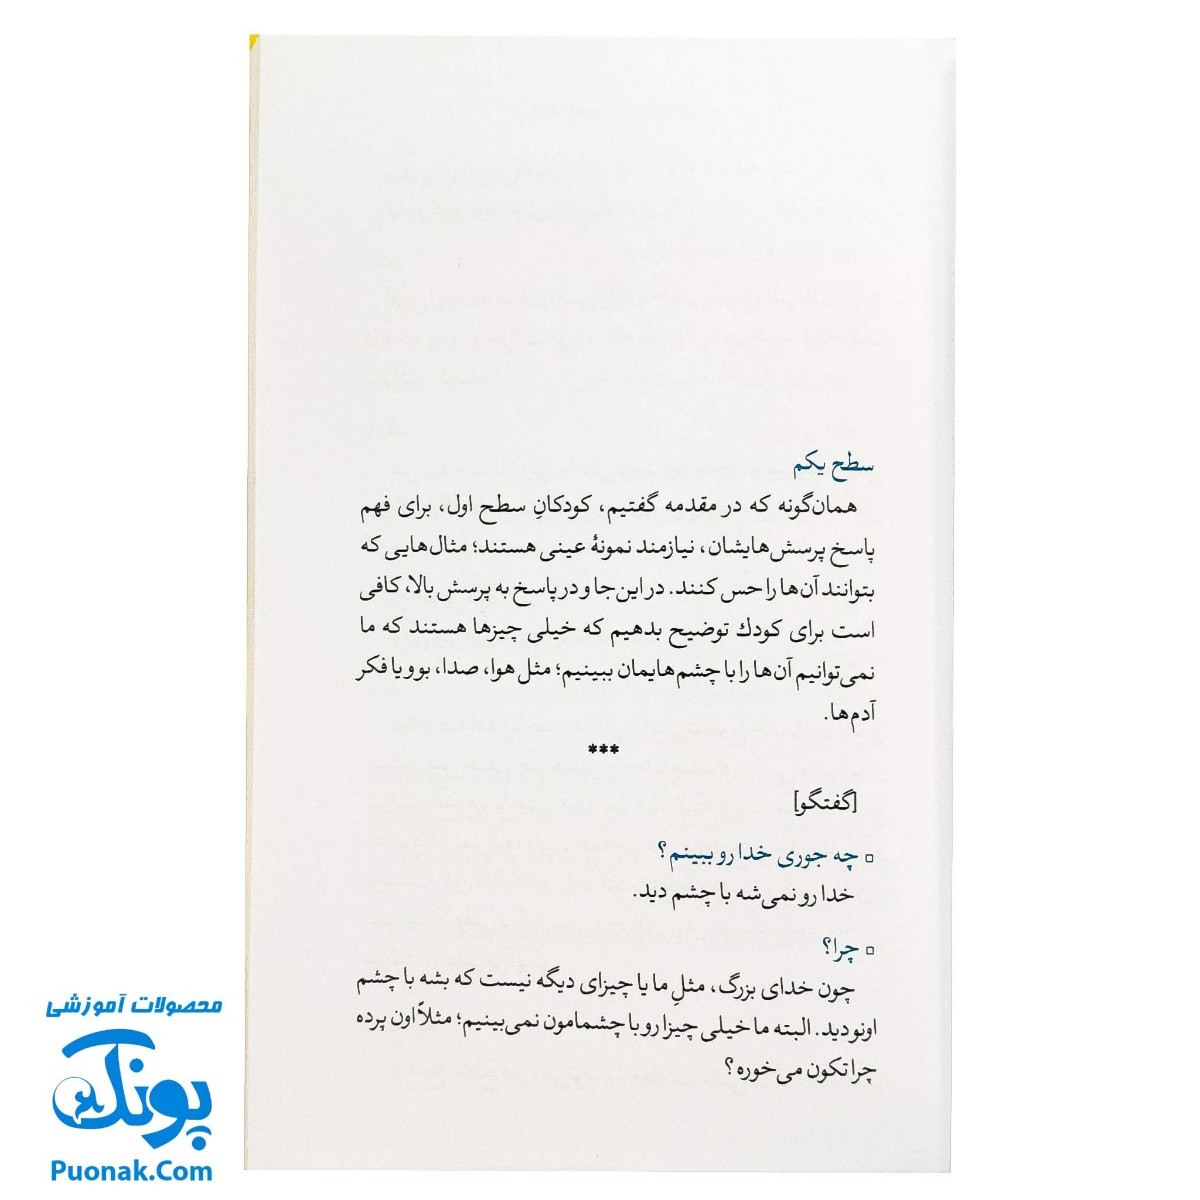 سطح یکم
همان‌گونه که در مقدمه گفتیم، کودکانِ سطح اول، برای فهم
پاسخ پرسش‌هایشان، نیازمند نمونهٔ عینی هستند؛ مثال‌هایی که
بتوانند آن‌ها را حس کنند. در این‌جا و در پاسخ به پرسش بالا، کافی
است برای کودك توضیح بدهیم که خیلی چیزها هستند که ما
نمی‌توانیم آن‌ها را با چشم‌هایمان ببینیم؛ مثل هوا، صدا، بو و یا فکر
آدم‌ها.
***
[گفتگو]
□ چه جوری خدا رو ببینم؟
خدا رو نمی‌شه با چشم دید.
□ چرا؟
چون خدای بزرگ، مثلِ ما یا چیزای دیگه نیست که بشه با چشم
اونو دید. البته ما خیلی چیزا رو با چشمامون نمی‌بینیم؛ مثلاً اون پرده
چرا تکون می‌خوره؟
محصولات آموزشی
پونک
Puonak.Com